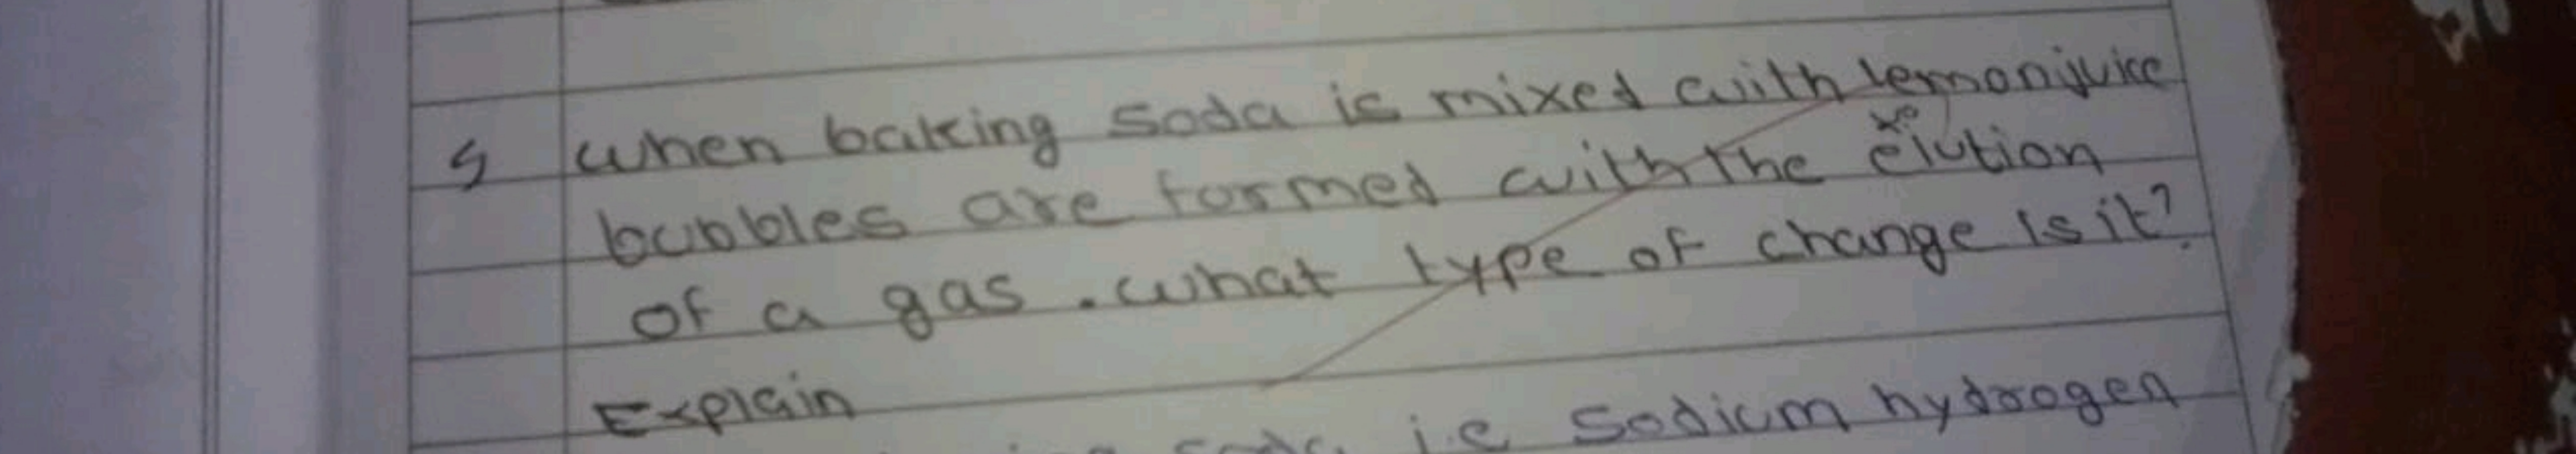 5 when baking soda is mixed with lemonjuice
bubbles are formed with the elution
of a gas. what type of change is it?
Explain
soda i.e sodium hydrogen